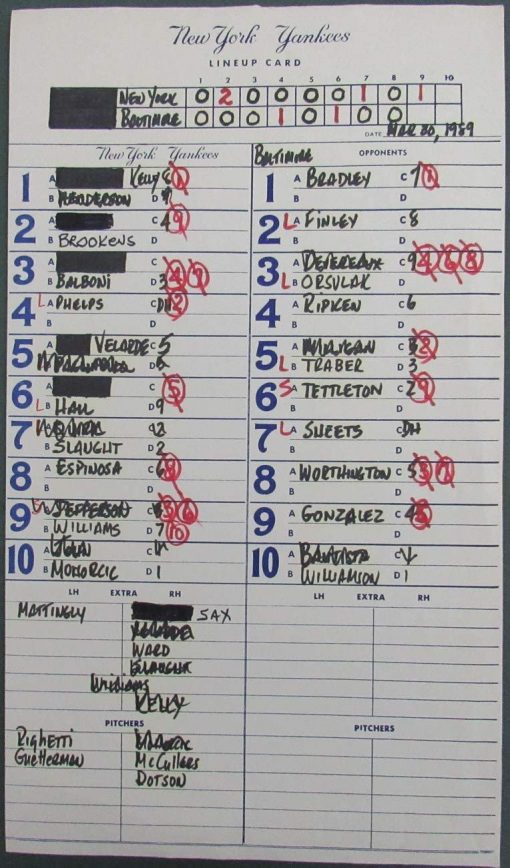 New York Yankees
LINEUP CARD
1 2 3 4 5 6 7 8 9 10
NEW YORK 0 2 0 0 0 0 1 0 1
BALTIMORE 0 0 0 1 0 1 0 0
DATE MAR 30, 1989
New York Yankees
1 A KELLY C 8
B HENDERSON D 7
2 A C 4 9
B BROOKENS D
3 A C
B BALBONI D 3 4 9
4 L A PHELPS C DH 2
B D
5 A VELARDE C 5
B D
6 A C 5
L B HALL D 9
7 A QUIRK C 2
B SLAUGHT D 2
8 A ESPINOSA C 6
B D
9 A JEFFERSON C
B WILLIAMS D 7 10
10 A C
B MOHORCIC D 1
BALTIMORE OPPONENTS
1 A BRADLEY C 7
B D
2 L A FINLEY C 8
B D
3 A DEVEREAUX C 9 4 6 8
L B ORSULAK D
4 A RIPKEN C 6
B D
5 A MILLIGAN C 3 2
L B TRABER D 3
6 S A TETTLETON C 2 9
B D
7 L A SHEETS C DH
B D
8 A WORTHINGTON C 5
B D
9 A GONZALEZ C 4
B D
10 A BAUTISTA C
B WILLIAMSON D 1
LH EXTRA RH
MATTINGLY SAX
VELARDE
WARD
SLAUGHT
Williams
KELLY
PITCHERS
Righetti
Guetterman McCullers
DOTSON
LH EXTRA RH
PITCHERS